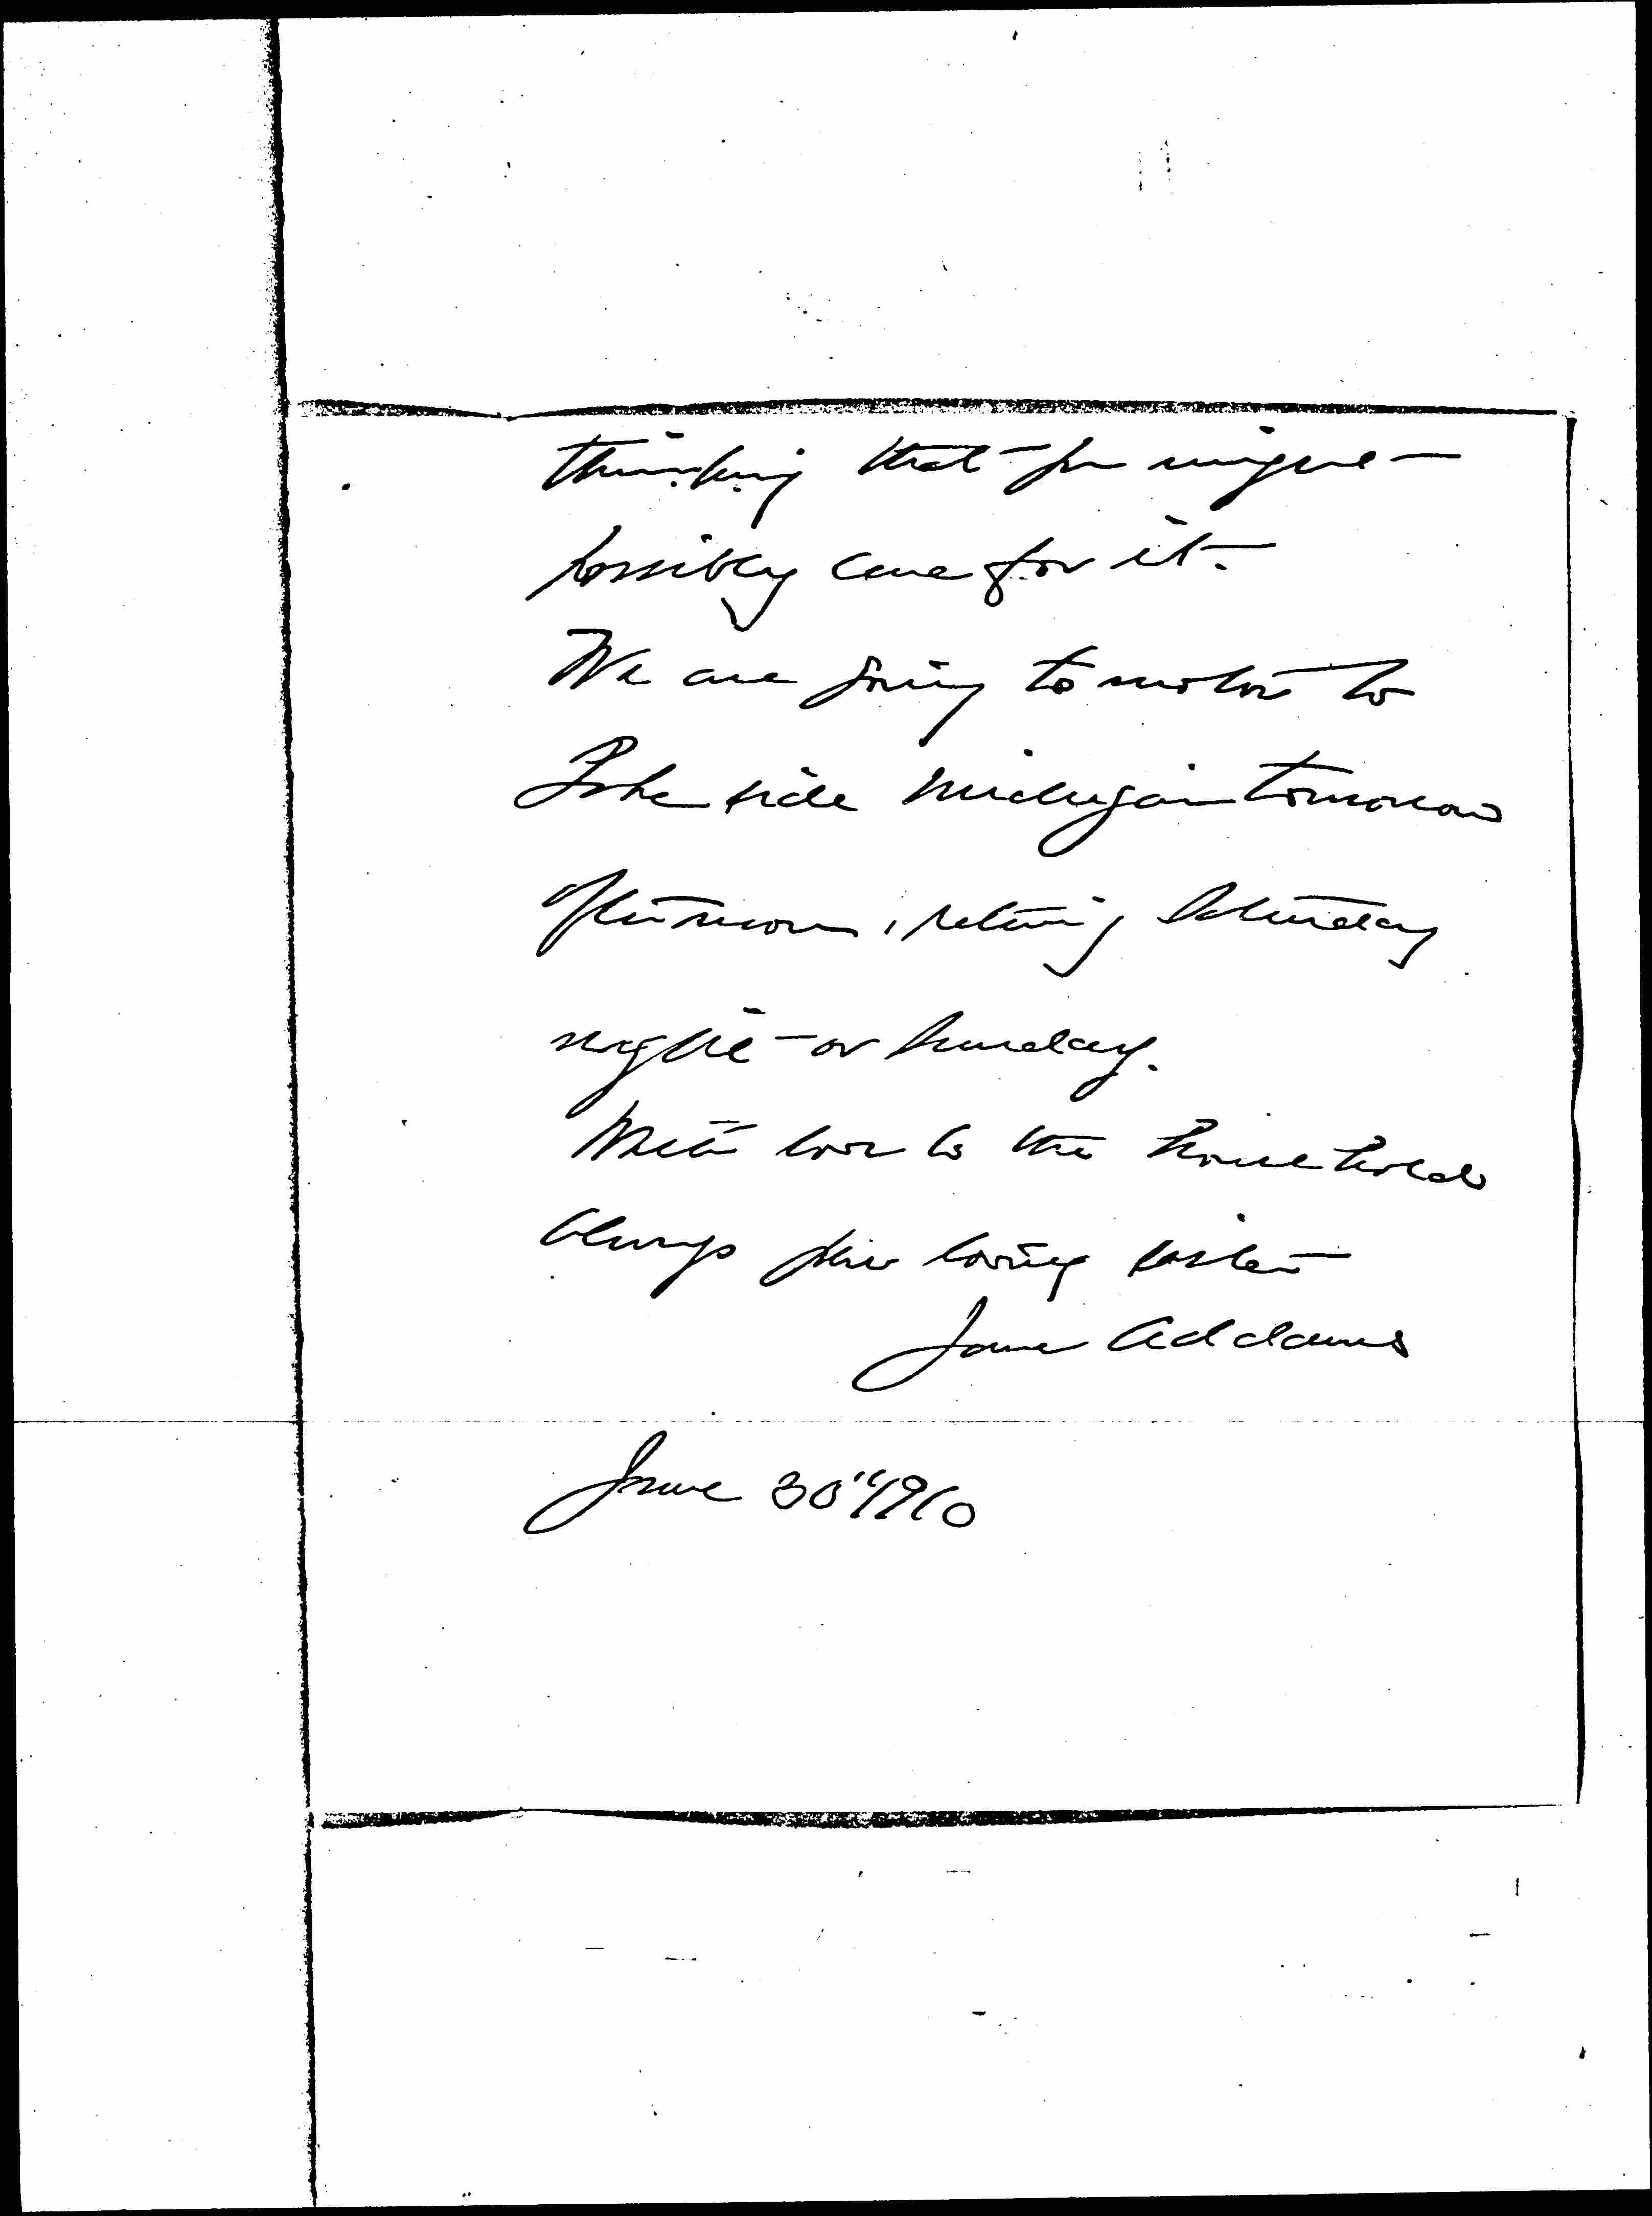 thinking that you might
possibly care for it.
We are going to motor to
Lake side Michigan tomorrow
afternoon, returning Saturday
night or Sunday.
With love to the household
Always your loving sister
Jane Addams
June 30" 1910